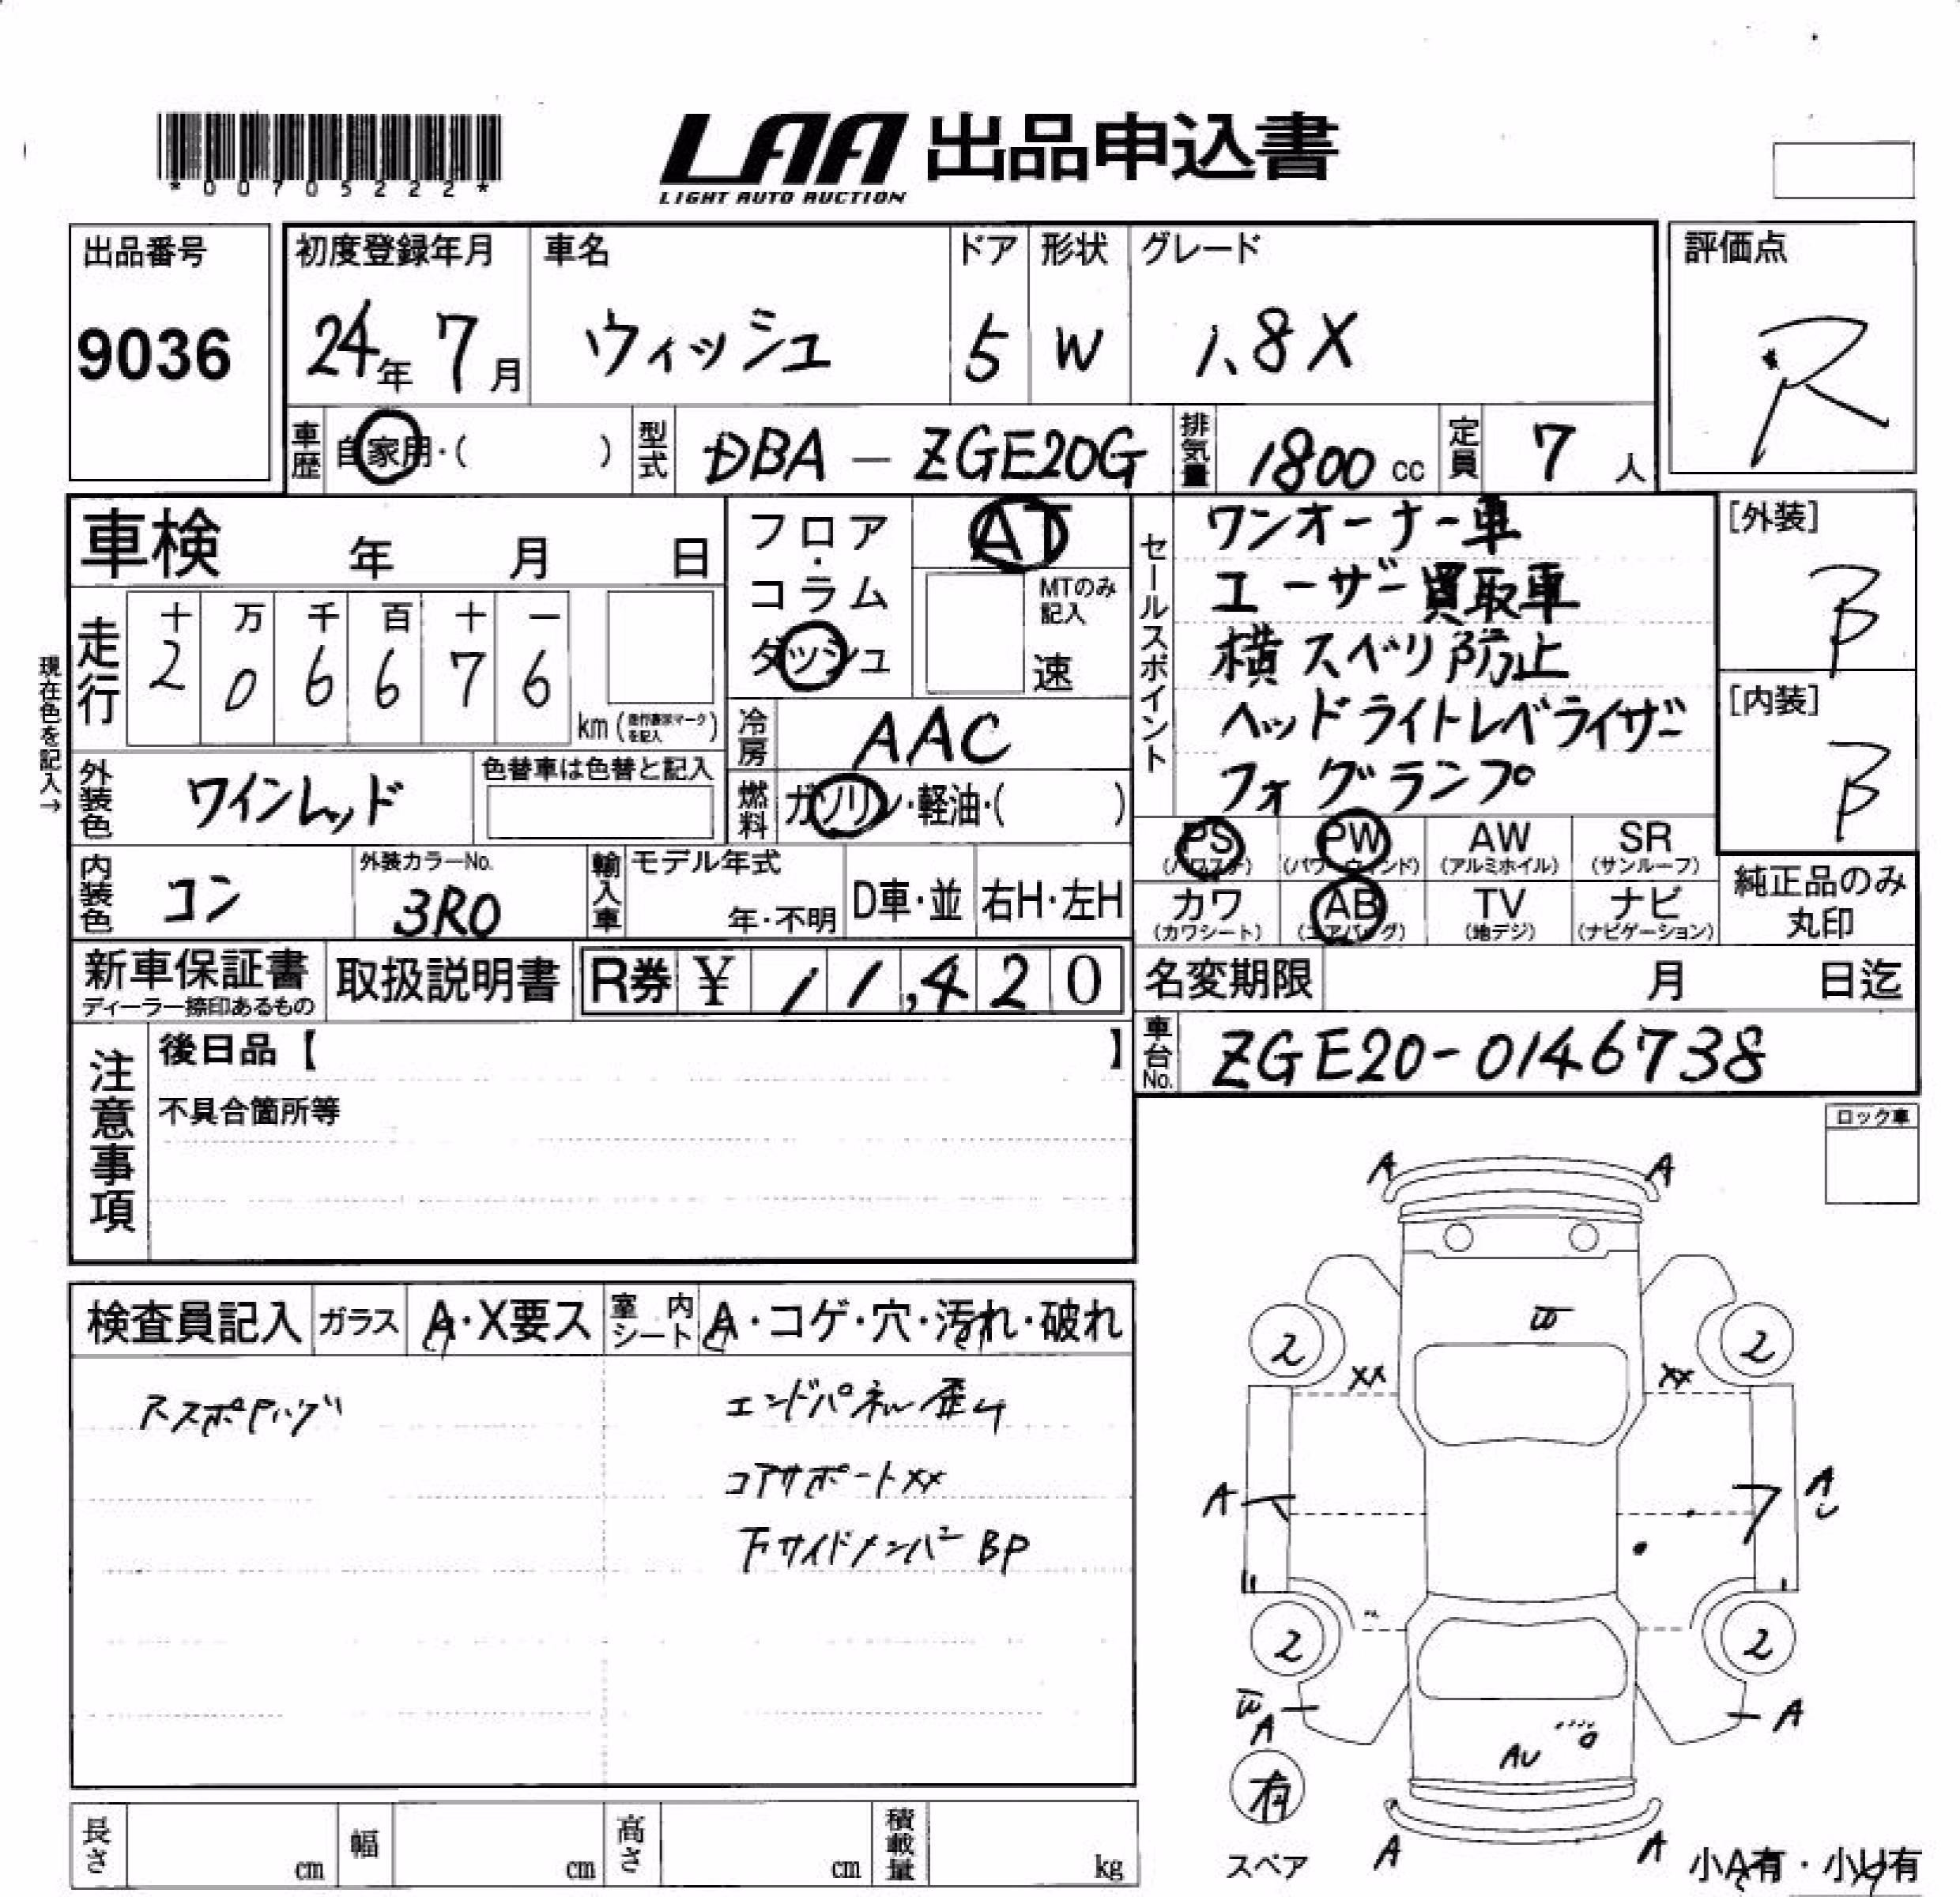 *00705222*
LAA 出品申込書
LIGHT AUTO AUCTION
出品番号
9036
初度登録年月
24年 7月
車名
ウィッシュ
ドア
5
形状
W
グレード
1.8X
評価点
R
車歴
自家用・( )
型式
DBA - ZGE20G
排気量
1800 cc
定員
7 人
車検 年 月 日
フロア・コラム
ダッシュ
AT
MTのみ
記入
速
セールスポイント
ワンオーナー車
ユーザー買取車
横スベリ防止
ヘッドライトレベライザー
フォグランプ
[外装]
B
[内装]
B
現在色を記入→
走行
十 万 千 百 十 一
2 0 6 6 7 6
km
冷房
AAC
外装色
ワインレッド
色替車は色替と記入
燃料
ガソリン・軽油・( )
PS
(パワステ)
PW
(パワーウィンド)
AW
(アルミホイル)
SR
(サンルーフ)
カワ
(カワシート)
AB
(エアバッグ)
TV
(地デジ)
ナビ
(ナビゲーション)
純正品のみ
丸印
内装色
コン
外装カラーNo.
3R0
輸入車
モデル年式
年・不明
D車・並
右H・左H
新車保証書
ディーラー捺印あるもの
取扱説明書
R券 ¥ 11,420
名変期限 月 日迄
車台No.
ZGE20-0146738
注意事項
後日品【 】
不具合箇所等
ロック車
検査員記入
ガラス
A・X要ス
室内シート
A・コゲ・穴・汚れ・破れ
エンドパネル歪ム
コアサポートXX
下サイドメンバー BP
A A
2 2
XX XX
A A
2 2
A A
AU
有
スペア
A A
小A有・小U有
長さ cm
幅 cm
高さ cm
積載量 kg